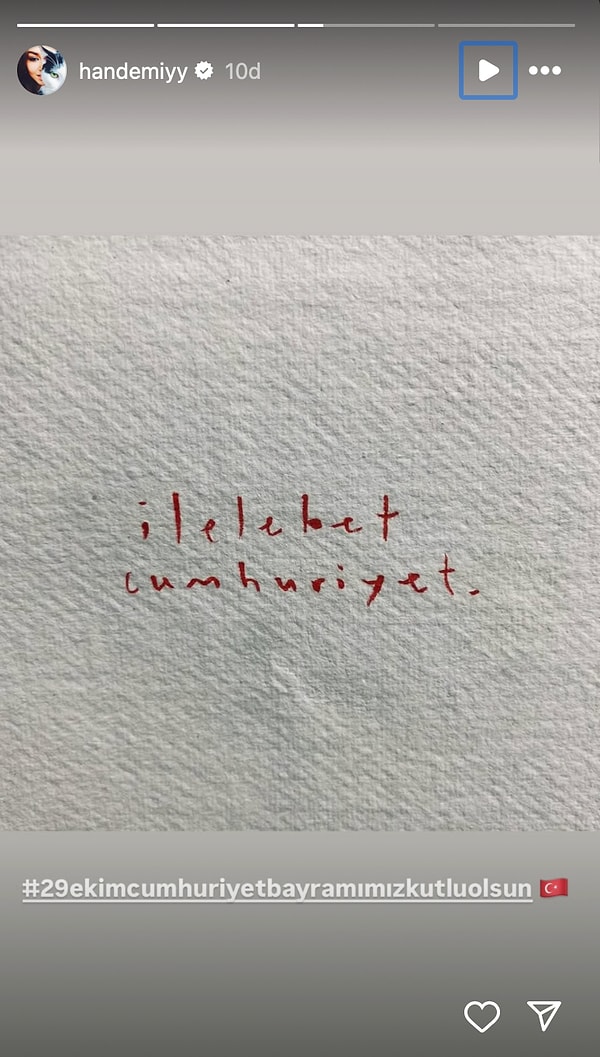 handemiyy 10d
ilelebet
cumhuriyet.
#29ekimcumhuriyetbayramımızkutluolsun